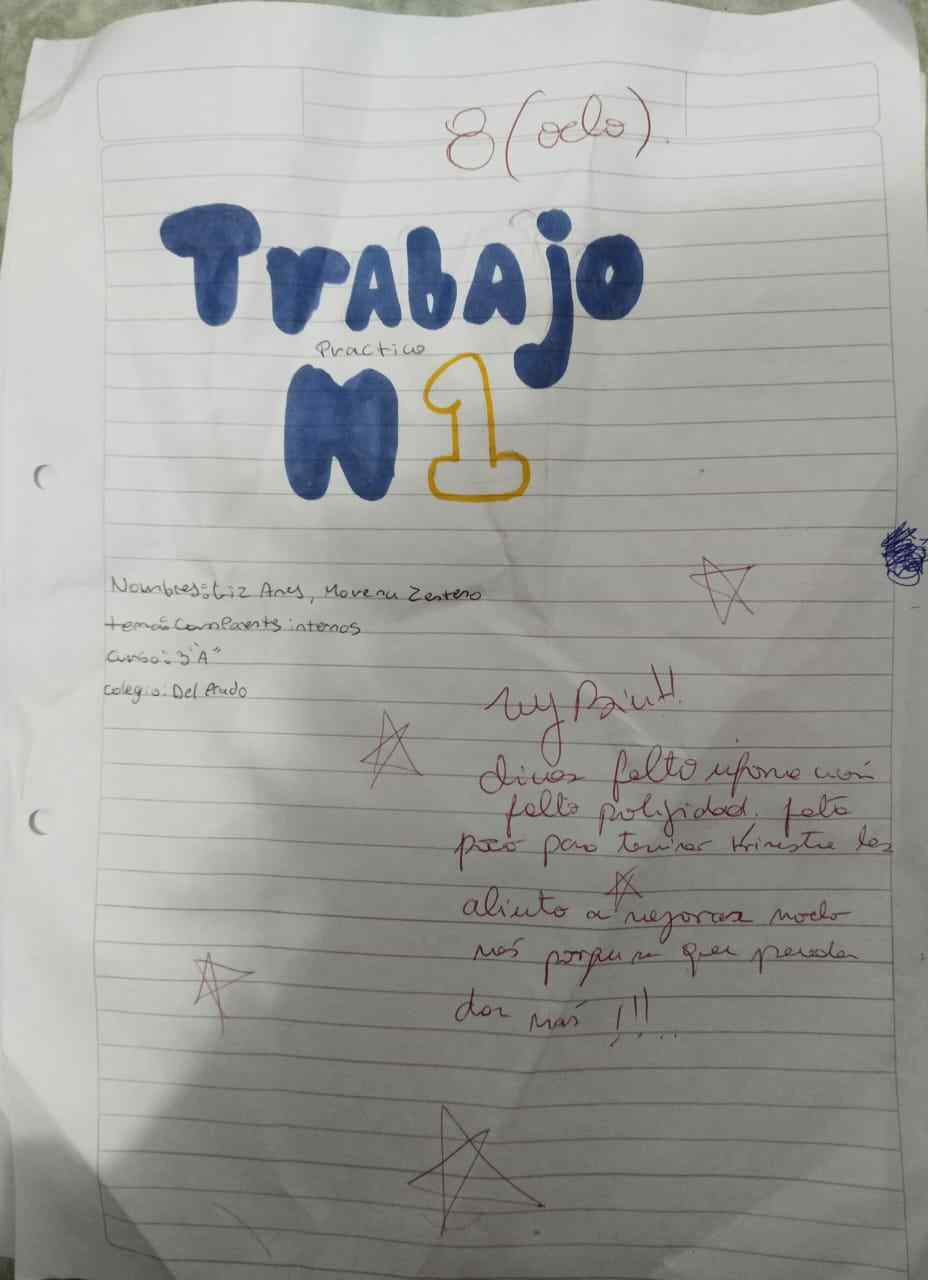 8 (ocho).
TrAbAjo
Practico
N 1
Nombres: Liz Ares, Morena Zenteno
tema: Componentes internos
curso: 3"A"
colegio: Del Prado
Muy Bien!!
chicas falto informacion
falto prolijidad. falta
poco para terminar trimestre les
aliento a mejorar mucho
más porque se que pueden
dar más !!!